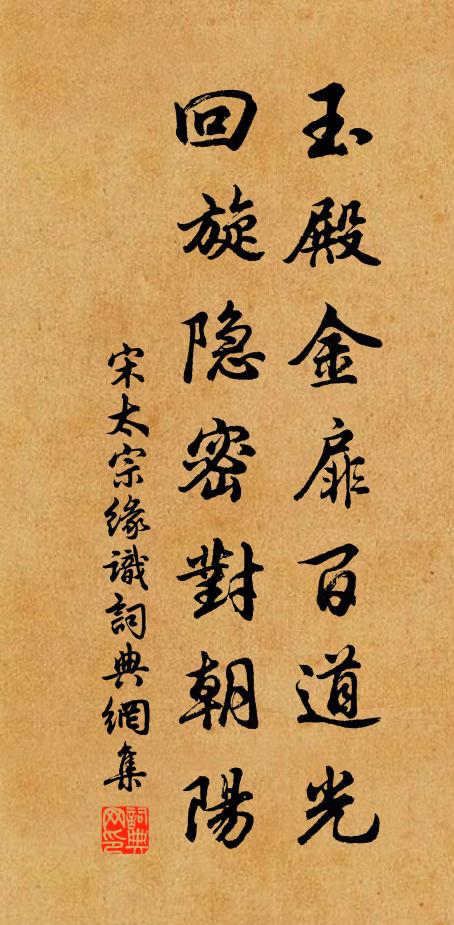 玉殿金扉百道光
回旋隐密對朝陽
宋太宗緣識詞典網集
詞典网印